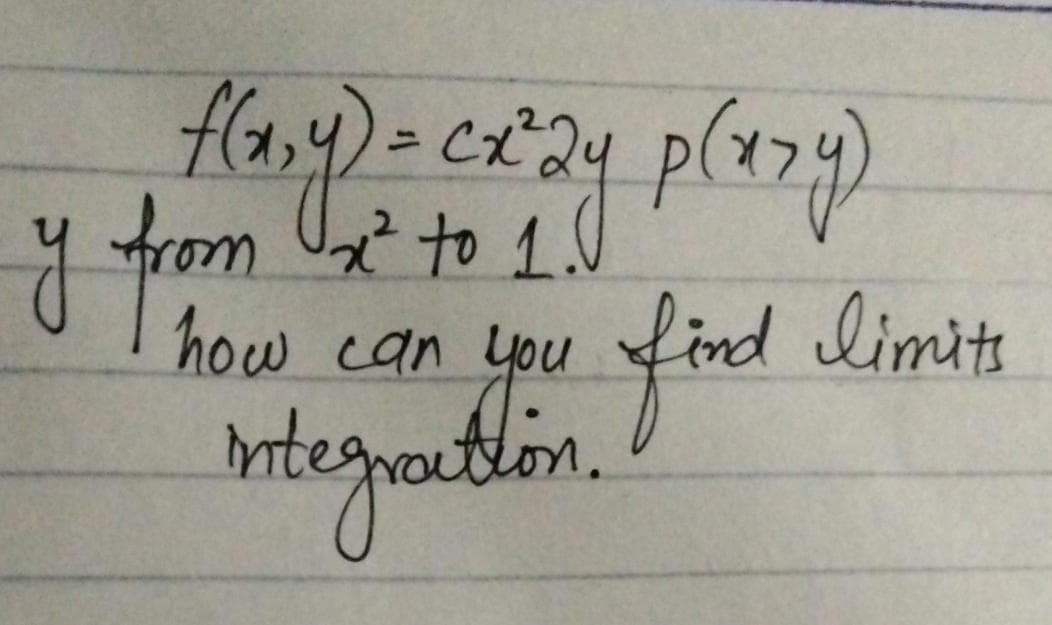 f(x,y) = cx²2y p(x>y)
y from x² to 1.
how can you find limits
integration.